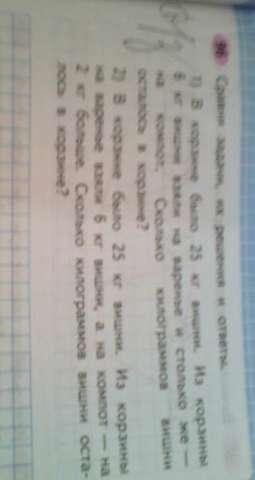 96 Сравни задачи, их решения и ответы.
1) В корзине было 25 кг вишни. Из корзины
6 кг вишни взяли на варенье и столько же —
на компот. Сколько килограммов вишни
осталось в корзине?
2) В корзине было 25 кг вишни. Из корзины
на варенье взяли 6 кг вишни, а на компот — на
2 кг больше. Сколько килограммов вишни оста-
лось в корзине?